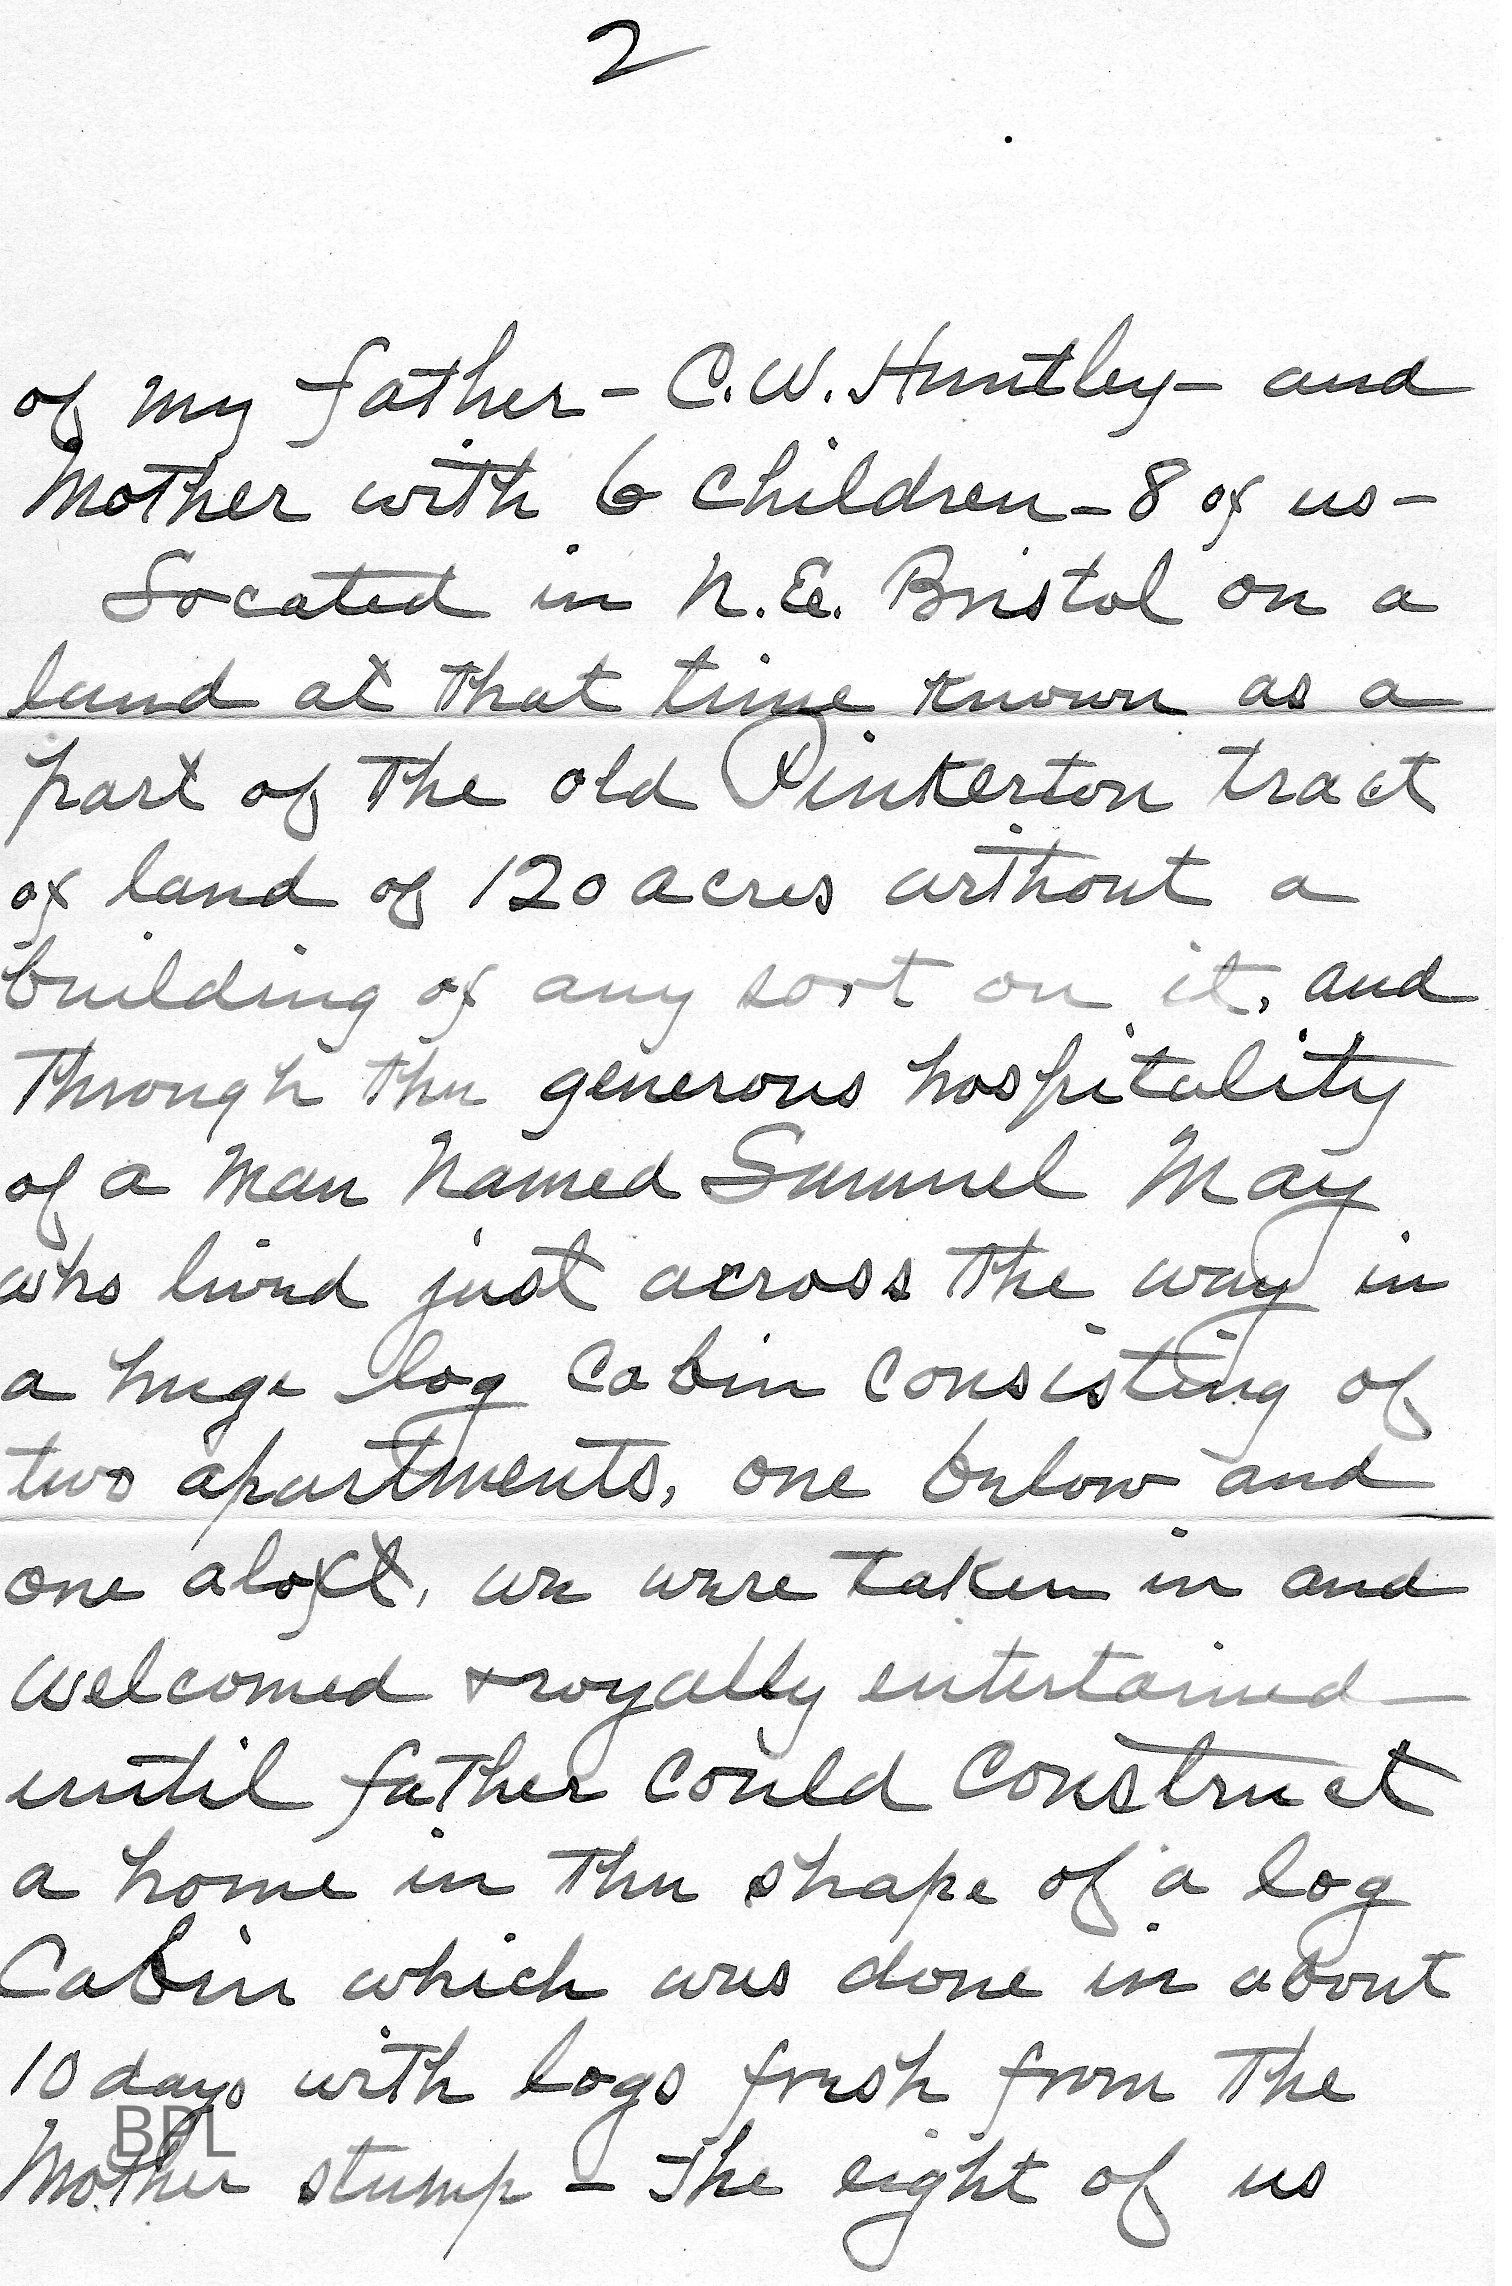 2
of my father - C.W. Huntley - and
Mother with 6 children - 8 of us -
Located in N.E. Bristol on a
land at that time known as a
part of the old Pinkerton tract
of land of 120 acres without a
building of any sort on it, and
through the generous hospitality
of a man named Samuel May
who lived just across the way in
a huge log cabin consisting of
two apartments, one below and
one aloft, we were taken in and
welcomed & royally entertained -
until father could construct
a home in the shape of a log
Cabin which was done in about
10 days with logs fresh from the
Mother stump - The eight of us
BPL